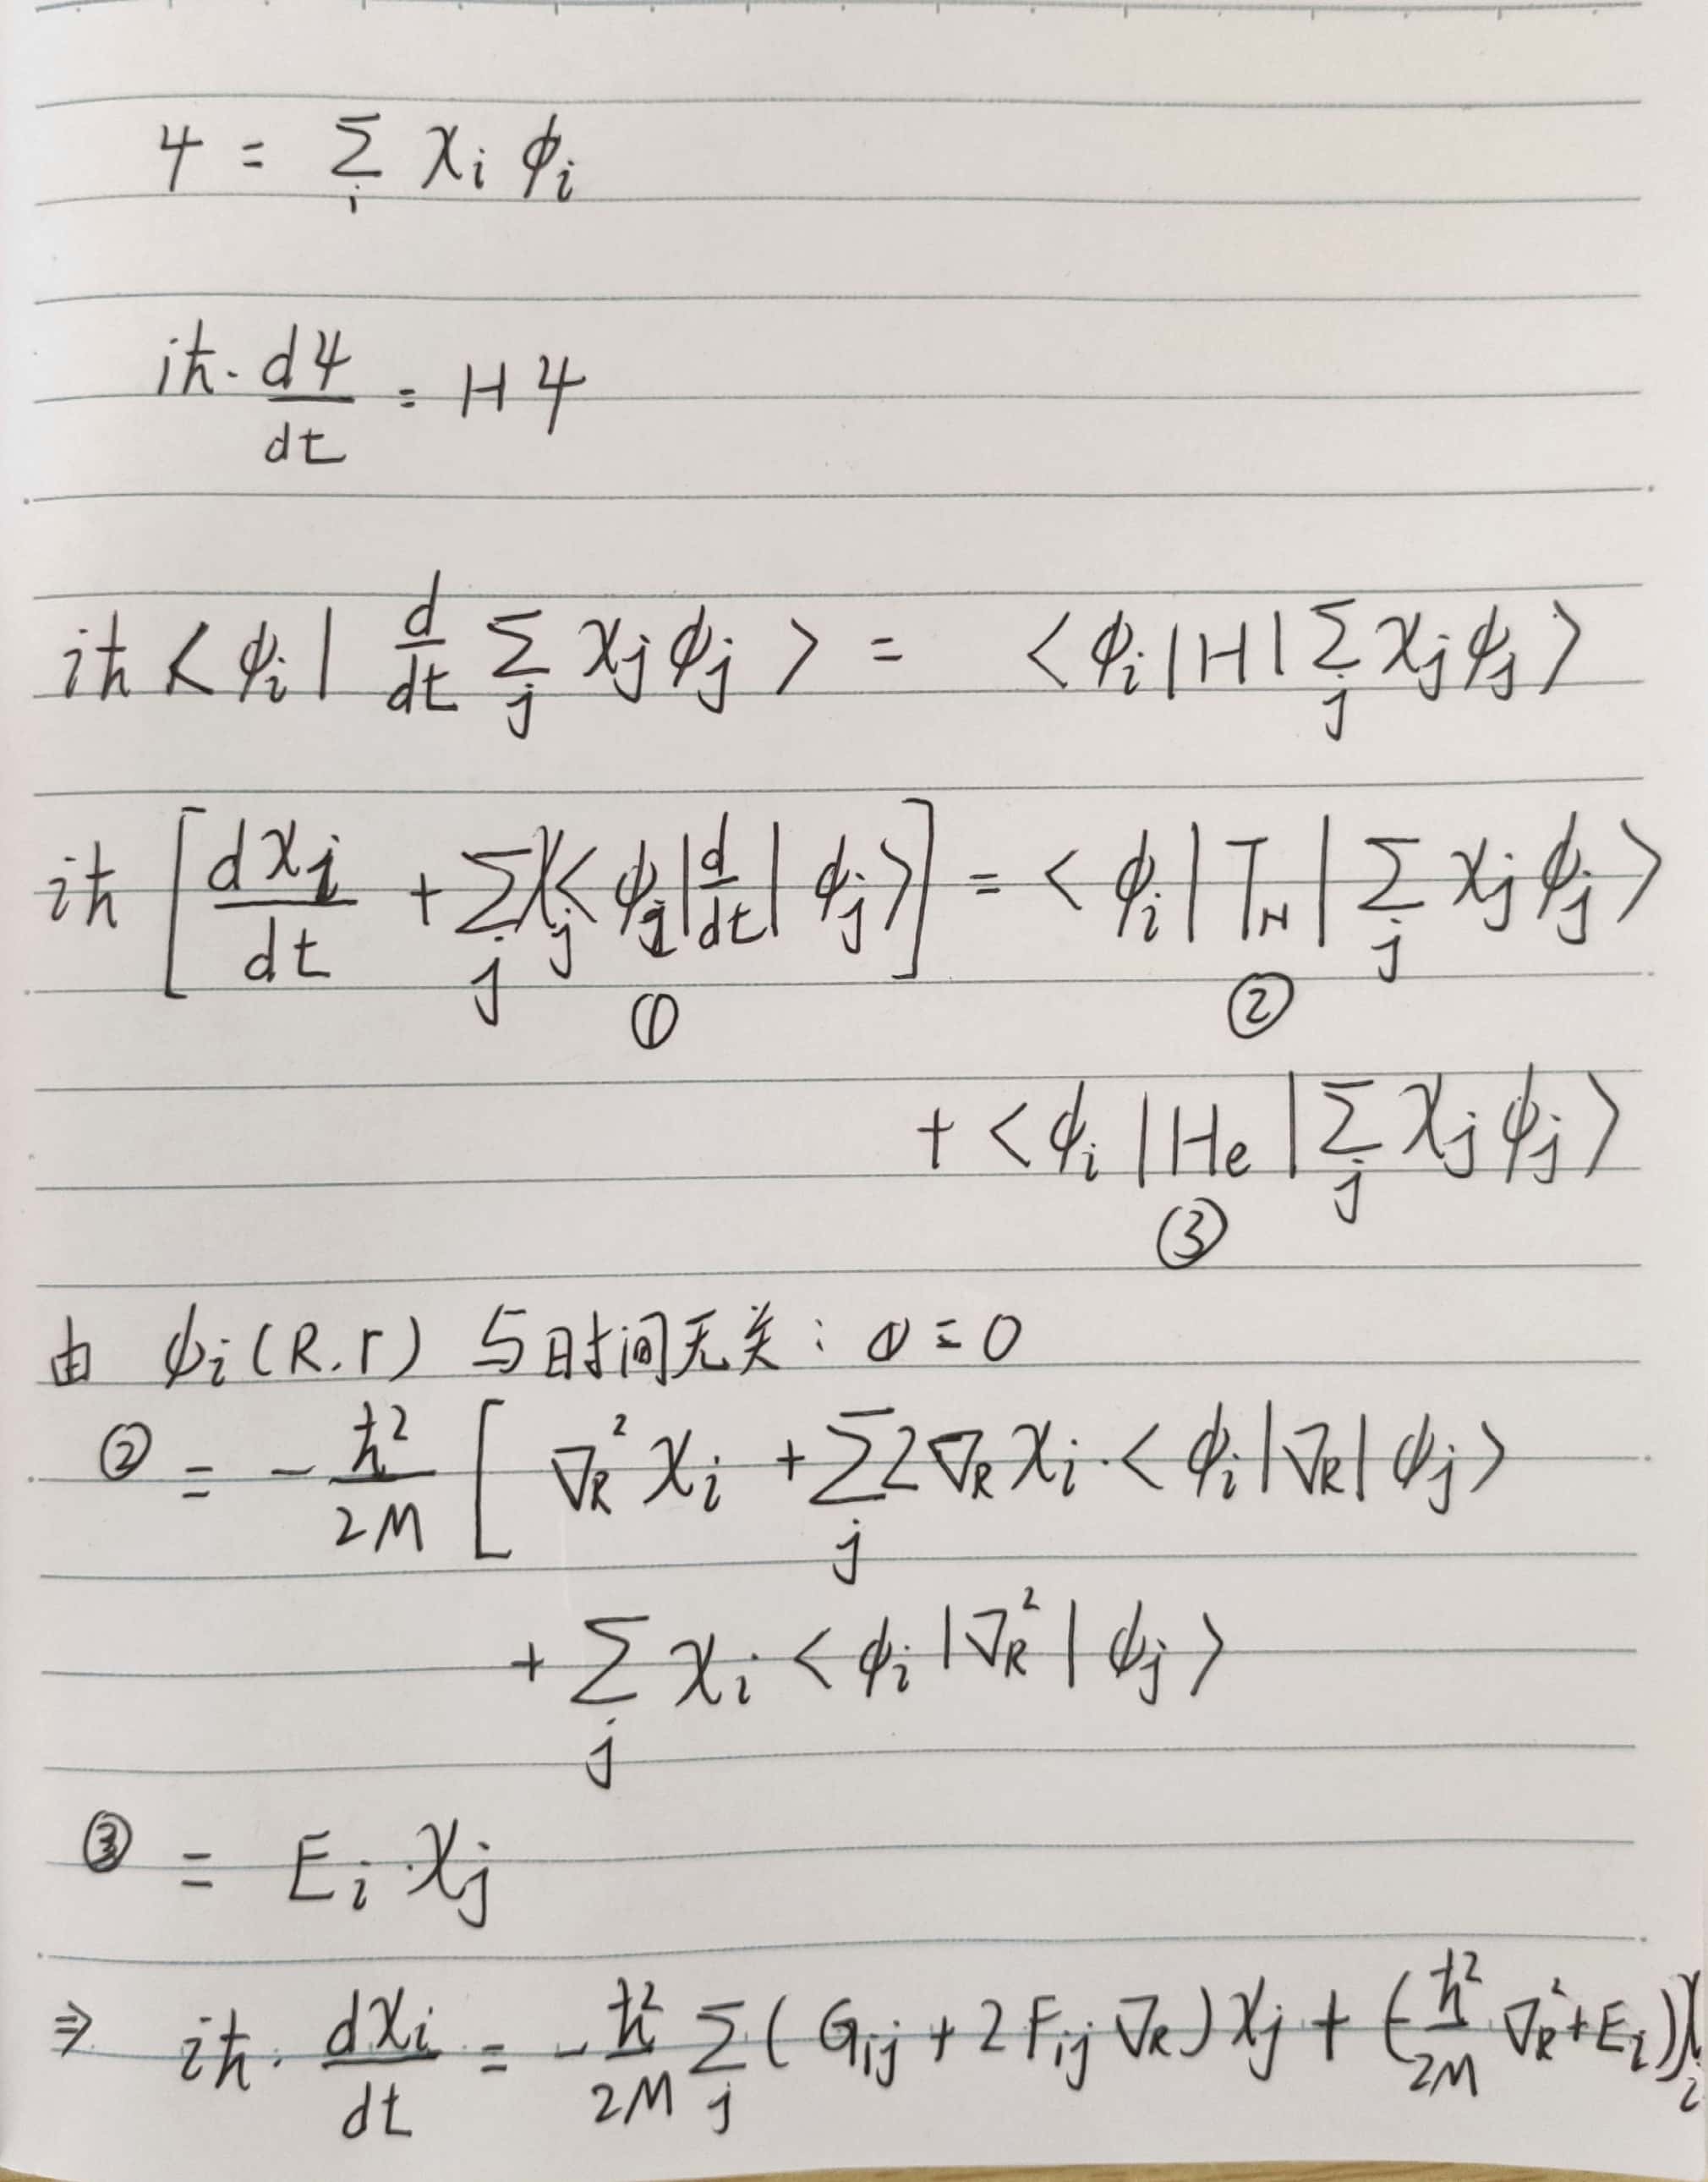 ψ = Σ_i χ_i φ_i
iħ · dψ/dt = Hψ
iħ < φ_i | d/dt Σ_j χ_j φ_j > = < φ_i | H | Σ_j χ_j φ_j >
iħ [ dχ_i/dt + Σ_j χ_j < φ_i | d/dt | φ_j > ] = < φ_i | T_N | Σ_j χ_j φ_j >
① ②
+ < φ_i | H_e | Σ_j χ_j φ_j >
③
由 φ_i (R.r) 与时间无关: ① = 0
② = - ħ²/2M [ ∇_R² χ_i + Σ_j 2∇_R χ_i · < φ_i | ∇_R | φ_j >
+ Σ_j χ_i < φ_i | ∇_R² | φ_j >
③ = E_i · χ_j
⇒ iħ · dχ_i/dt = - ħ²/2M Σ_j ( G_ij + 2F_ij ∇_R ) χ_j + (- ħ²/2M ∇_R² + E_i ) χ_i